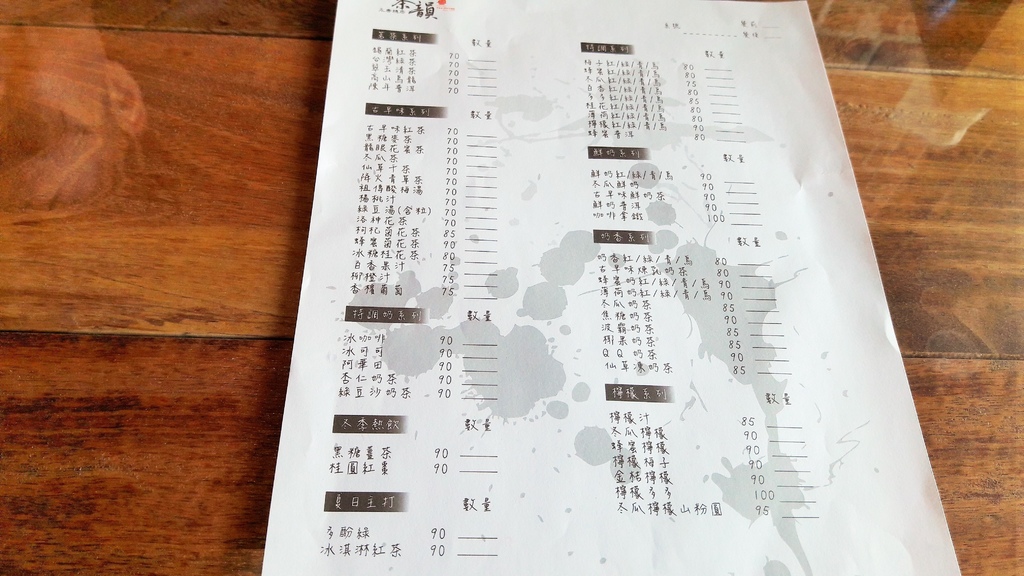 茶韻
茗茶系列 數量
錫蘭紅茶 70
台灣綠茶 70
翡玉清茶 70
高山烏龍 70
陳年普洱 70
古早味系列 數量
古早味紅茶 70
黑糖麥茶 70
龍眼花蜜茶 70
冬瓜茶 70
仙草干茶 70
降火青草茶 70
祖傳酸梅湯 70
楊桃汁 70
綠豆湯(含粒) 70
洛神花茶 70
枸杞菊花茶 85
蜂蜜菊花茶 90
冰糖桂花茶 80
百香果汁 75
柳橙汁 75
香檳葡萄 75
特調奶系列 數量
冰咖啡 90
冰可可 90
阿華田 90
杏仁奶茶 90
綠豆沙奶茶 90
冬季熱飲 數量
黑糖薑茶 90
桂圓紅棗 90
夏日主打 數量
多酚綠 90
冰淇淋紅茶 90
特調系列 數量
梅子紅/綠/青/烏 80
蜂蜜紅/綠/青/烏 80
冬瓜紅/綠/青/烏 75
百香紅/綠/青/烏 80
多多紅/綠/青/烏 85
桂花紅/綠/青/烏 80
薄荷紅/綠/青/烏 85
檸檬紅/綠/青/烏 90
蜂蜜普洱 80
鮮奶系列 數量
鮮奶紅/綠/青/烏 90
冬瓜鮮奶 90
古早味鮮奶茶 90
鮮奶普洱 90
咖啡拿鐵 100
奶香系列 數量
奶香紅/綠/青/烏 80
古早味煉乳奶茶 80
蜂蜜奶紅/綠/青/烏 90
薄荷奶紅/綠/青/烏 90
冬瓜奶茶 85
焦糖奶茶 90
波霸奶茶 85
椰果奶茶 85
QQ奶茶 90
仙草凍奶茶 85
檸檬系列 數量
檸檬汁 85
冬瓜檸檬 90
蜂蜜檸檬 90
檸檬梅子 90
金桔檸檬 90
檸檬多多 100
冬瓜檸檬山粉圓 95